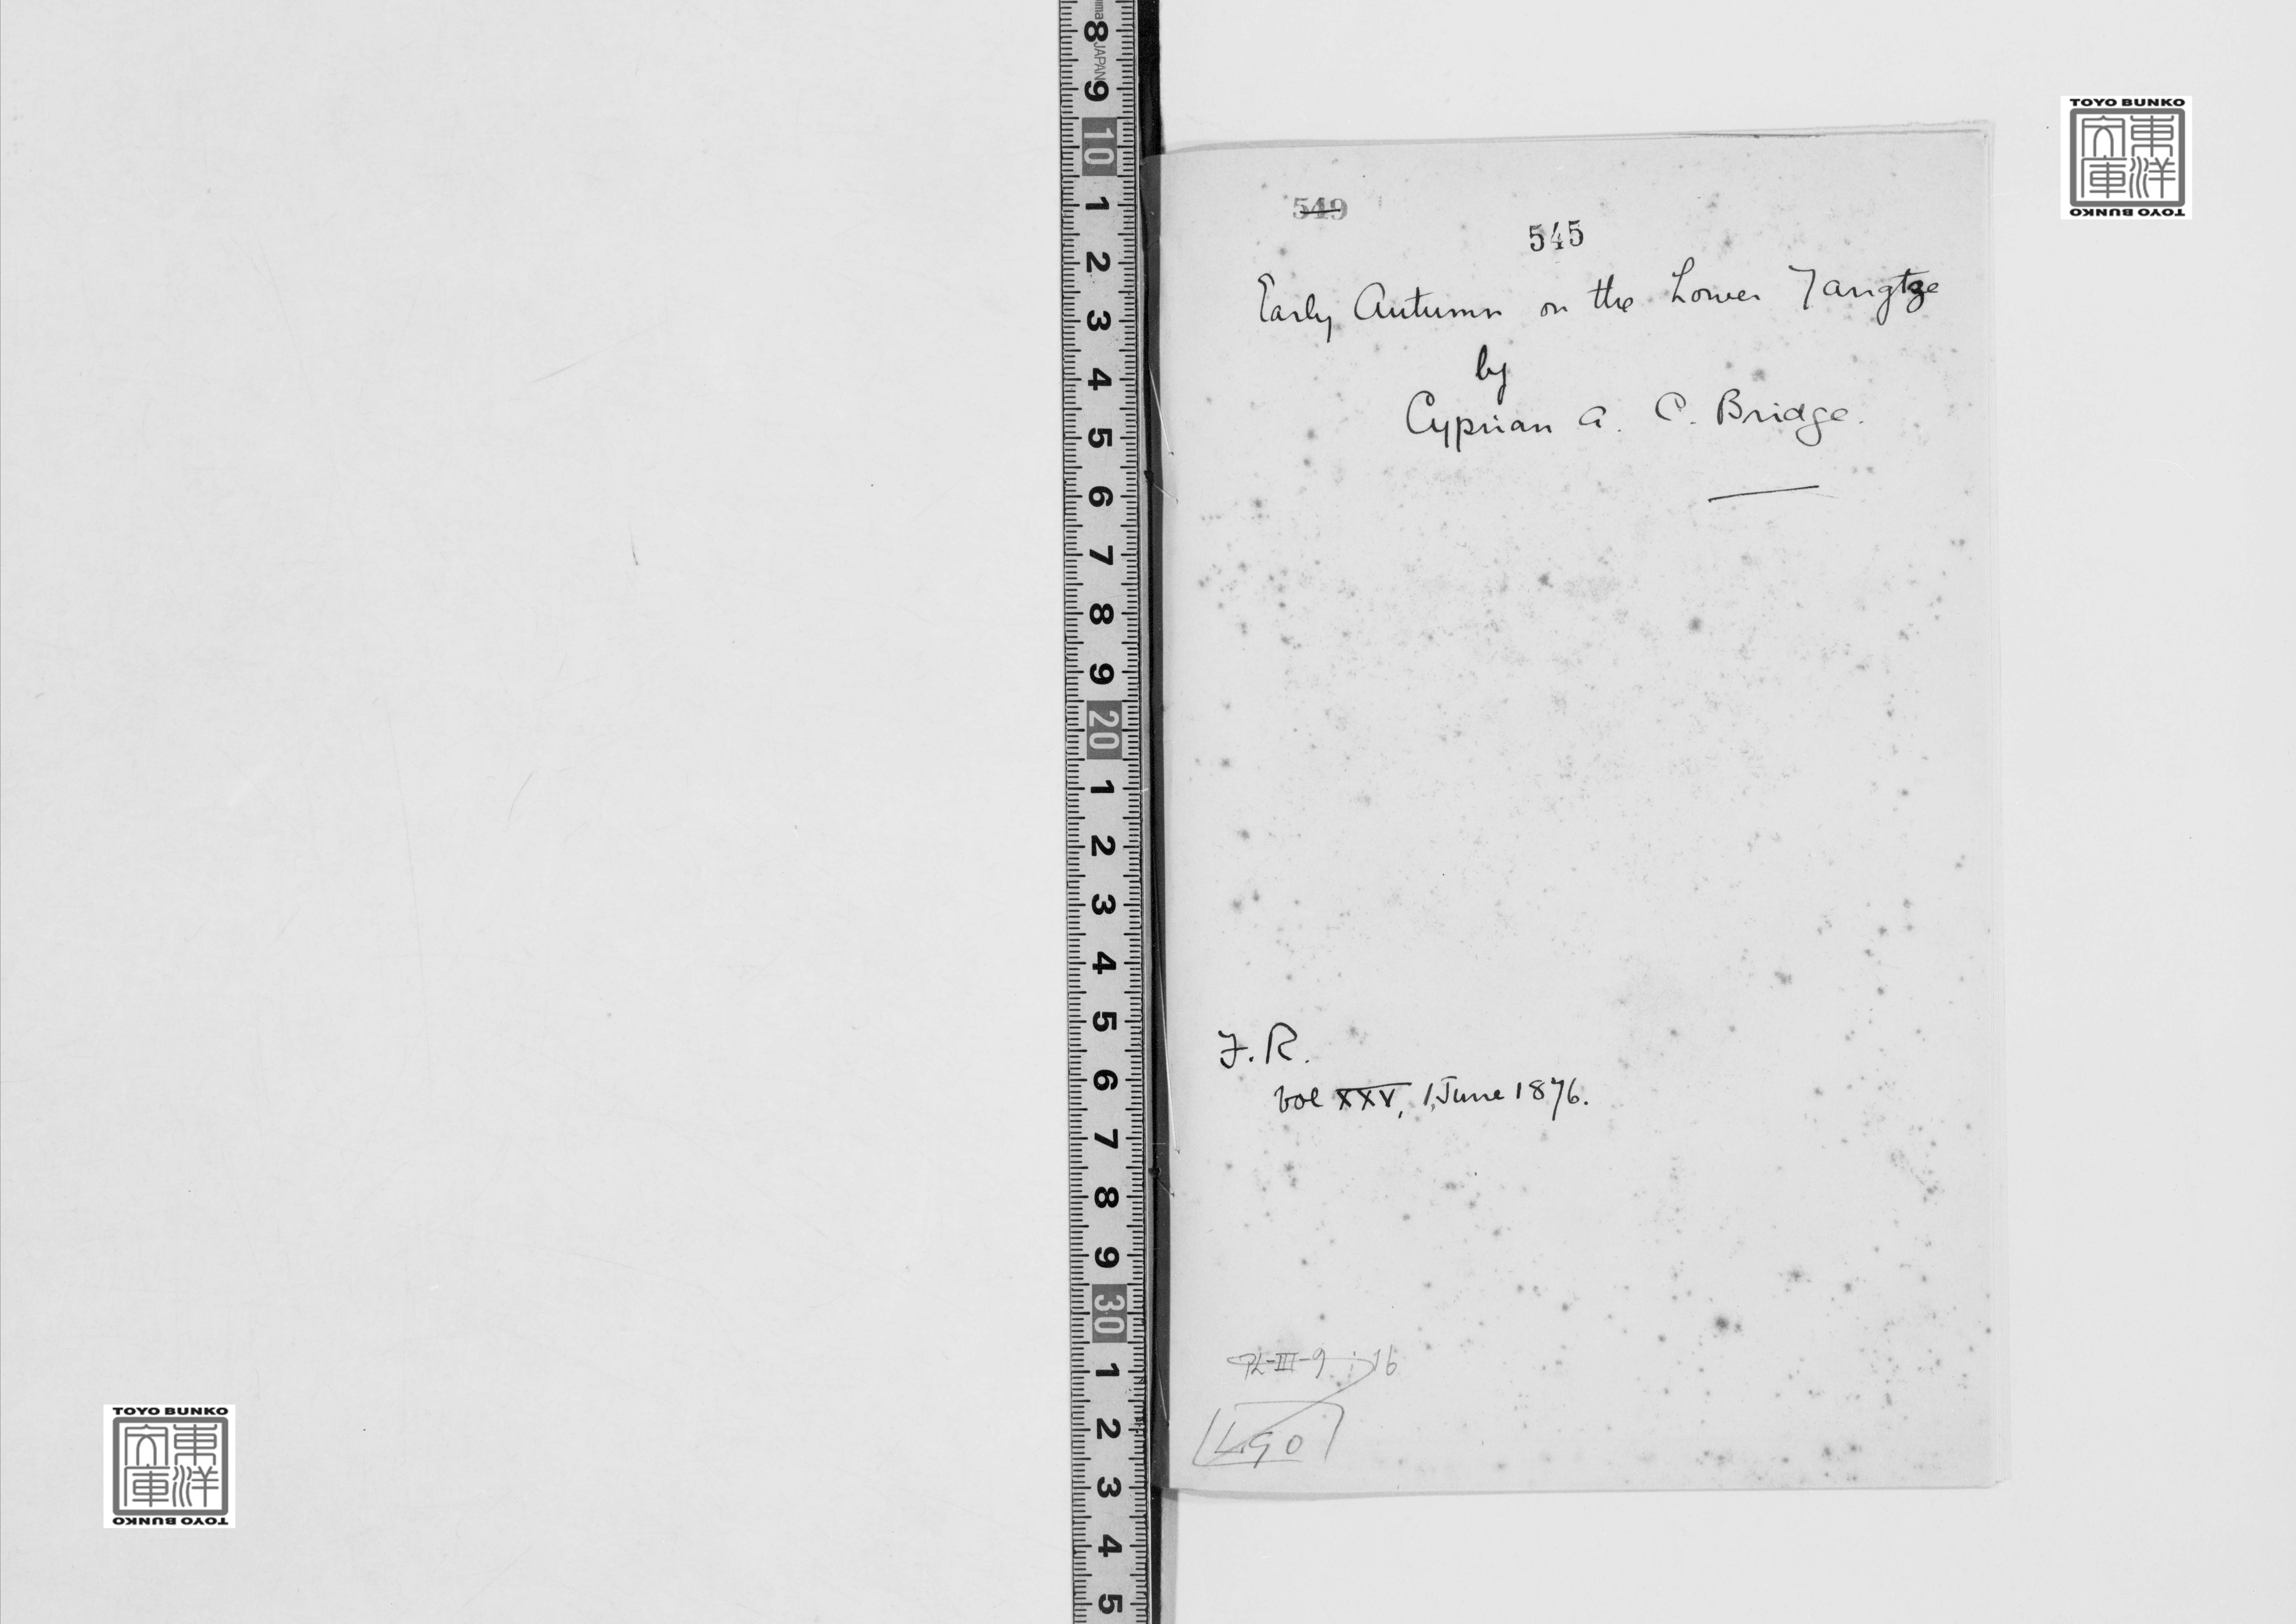 549
545
Early Autumn on the Lower Yangtze
by
Cyprian A. C. Bridge.
F. R.
Vol XXV, 1 June 1876.
PL-III-9 : 16
490
TOYO BUNKO
東洋文庫
TOYO BUNKO
TOYO BUNKO
東洋文庫
TOYO BUNKO
JAPAN
8
9
10
1
2
3
4
5
6
7
8
9
20
1
2
3
4
5
6
7
8
9
30
1
2
3
4
5